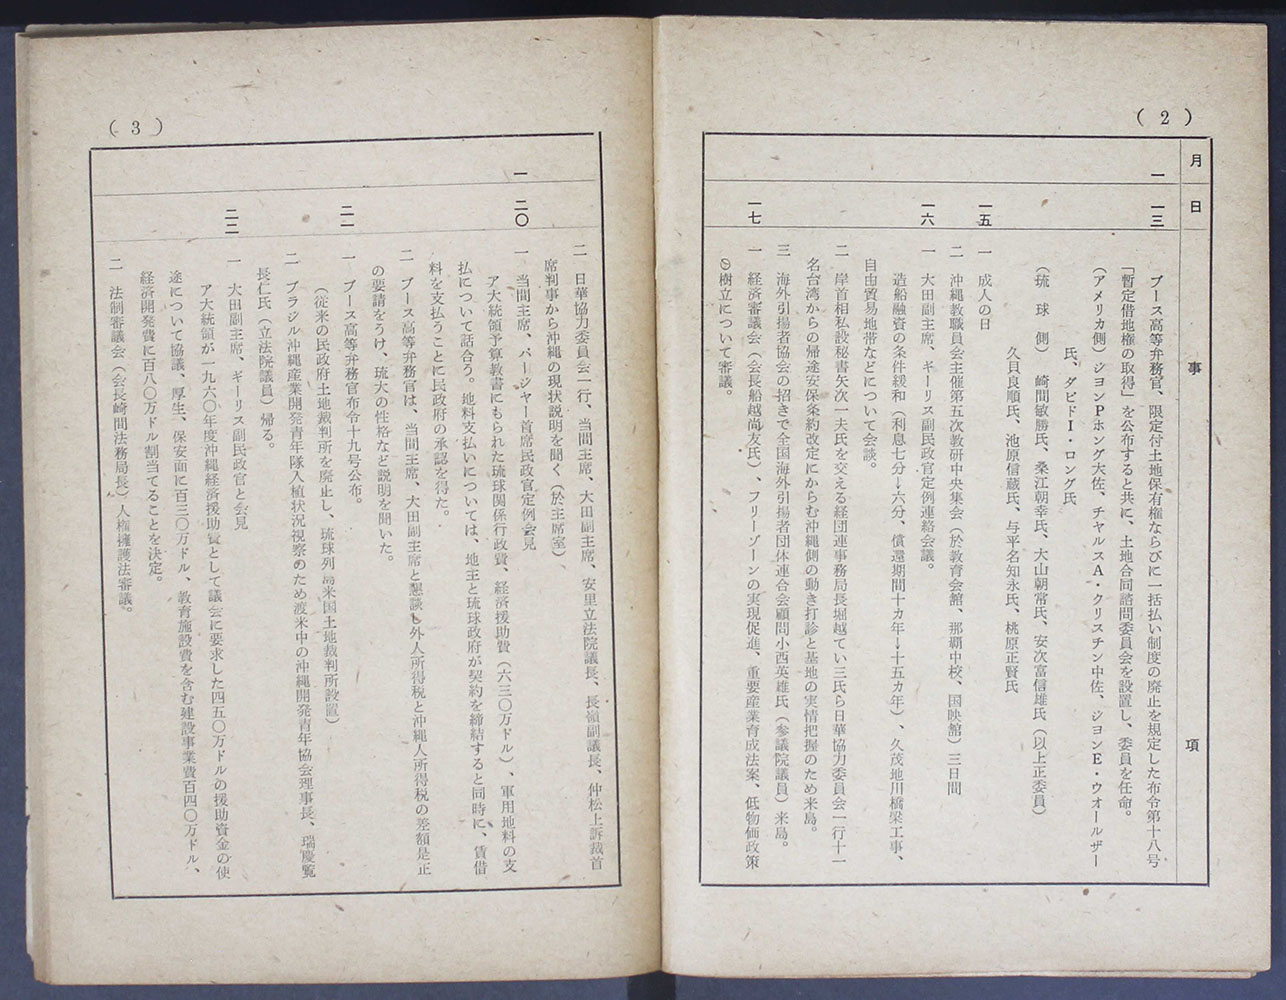 (2)
月 日 事 項
一 一三 ブース高等弁務官、限定付土地保有権ならびに一括払い制度の廃止を規定した布令第十八号
「暫定借地権の取得」を公布すると共に、土地合同諮問委員会を設置し、委員を任命。
(アメリカ側) ジヨンPホング大佐、チャルスA・クリスチン中佐、ジヨンE・ウオールザー
氏、ダビドI・ロング氏
(琉球側) 崎間敏勝氏、桑江朝幸氏、大山朝常氏、安次富信雄氏(以上正委員)
久貝良順氏、池原信蔵氏、与平名知永氏、桃原正賢氏
一五 一 成人の日
二 沖縄教職員会主催第五次教研中央集会(於教育会館、那覇中校、国映館)三日間
一六 一 大田副主席、ギーリス副民政官定例連絡会議。
造船融資の条件緩和(利息七分→六分、償還期間十カ年→十五カ年)、久茂地川橋梁工事、
自由貿易地帯などについて会談。
二 岸首相私設秘書矢次一夫氏を交える経団連事務局長堀越てい三氏ら日華協力委員会一行十一
名台湾からの帰途安保条約改定にからむ沖縄側の動き打診と基地の実情把握のため来島。
三 海外引揚者協会の招きで全国海外引揚者団体連合会顧問小西英雄氏(参議院議員)来島。
一七 一 経済審議会(会長船越尚友氏)、フリーゾーンの実現促進、重要産業育成法案、低物価政策
の樹立について審議。
(3)
二 日華協力委員会一行、当間主席、大田副主席、安里立法院議長、長嶺副議長、仲松上訴裁首
席判事から沖縄の現状説明を聞く(於主席室)
一 二〇 一 当間主席、バージャー首席民政官定例会見
ア大統領予算教書にもられた琉球関係行政費、経済援助費(六三〇万ドル)、軍用地料の支
払について話合う。地料支払いについては、地主と琉球政府が契約を締結すると同時に、賃借
料を支払うことに民政府の承認を得た。
二 ブース高等弁務官は、当間主席、大田副主席と懇談し外人所得税と沖縄人所得税の差額是正
の要請をうけ、琉大の性格など説明を聞いた。
二一 一 ブース高等弁務官布令十九号公布。
(従来の民政府土地裁判所を廃止し、琉球列島米国土地裁判所設置)
二 ブラジル沖縄産業開発青年隊入植状況視察のため渡米中の沖縄開発青年協会理事長、瑞慶覧
長仁氏(立法院議員)帰る。
二二 一 大田副主席、ギーリス副民政官と会見
ア大統領が一九六〇年度沖縄経済援助費として議会に要求した四五〇万ドルの援助資金の使
途について協議、厚生、保安面に百三〇万ドル、教育施設費を含む建設事業費百四〇万ドル、
経済開発費に百八〇万ドル割当てることを決定。
二 法制審議会(会長崎間法務局長)人権擁護法審議。